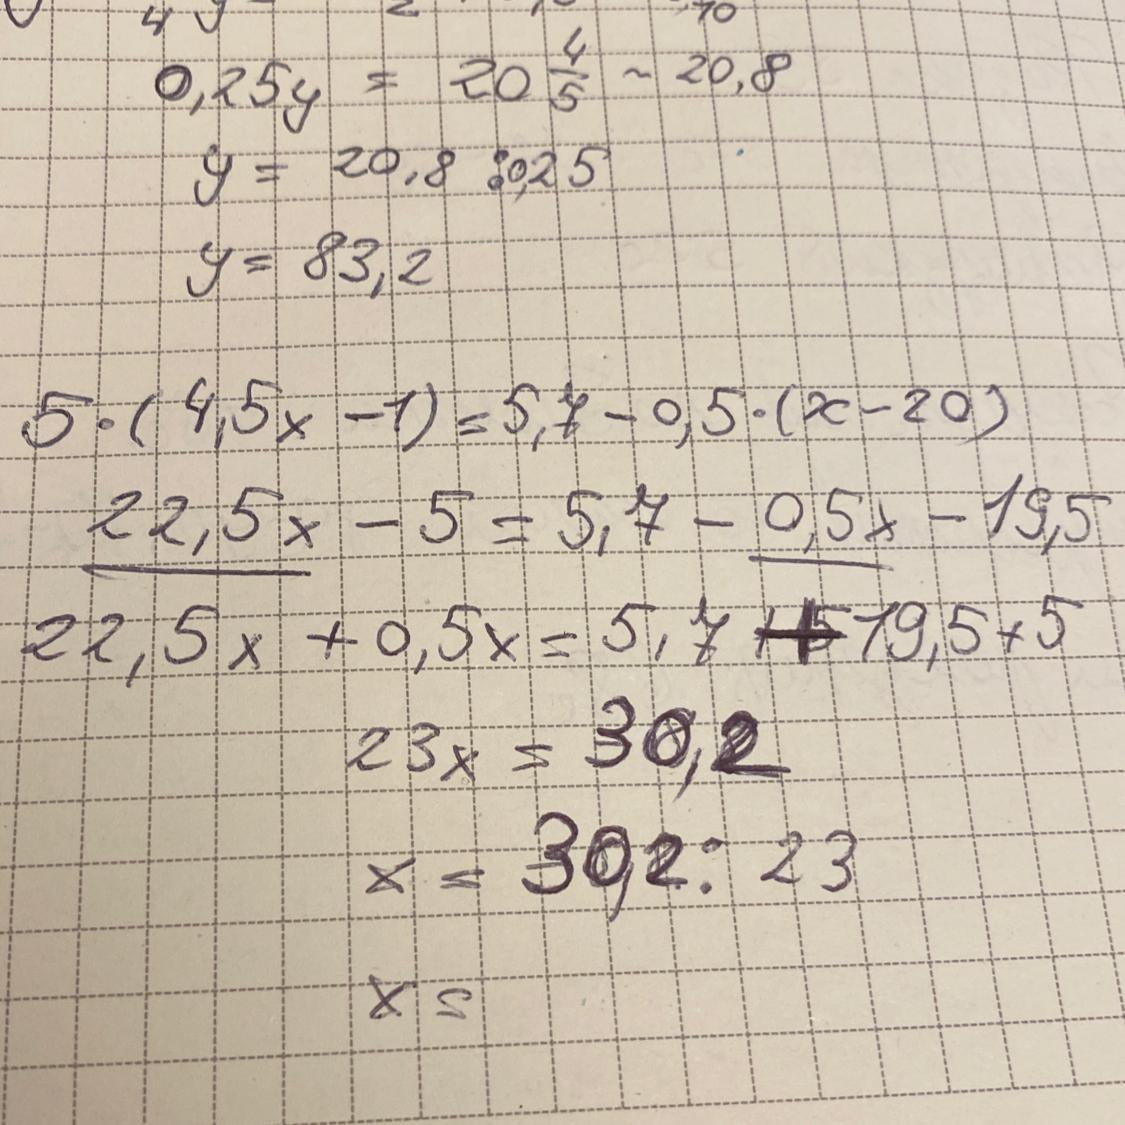 0,25y = 20 4/5 ~ 20,8
y = 20,8 : 0,25
y = 83,2
5·(4,5x - 1) = 5,7 - 0,5·(x - 20)
22,5x - 5 = 5,7 - 0,5x - 19,5
22,5x + 0,5x = 5,7 19,5 + 5
23x = 30,2
x = 30,2 : 23
x =